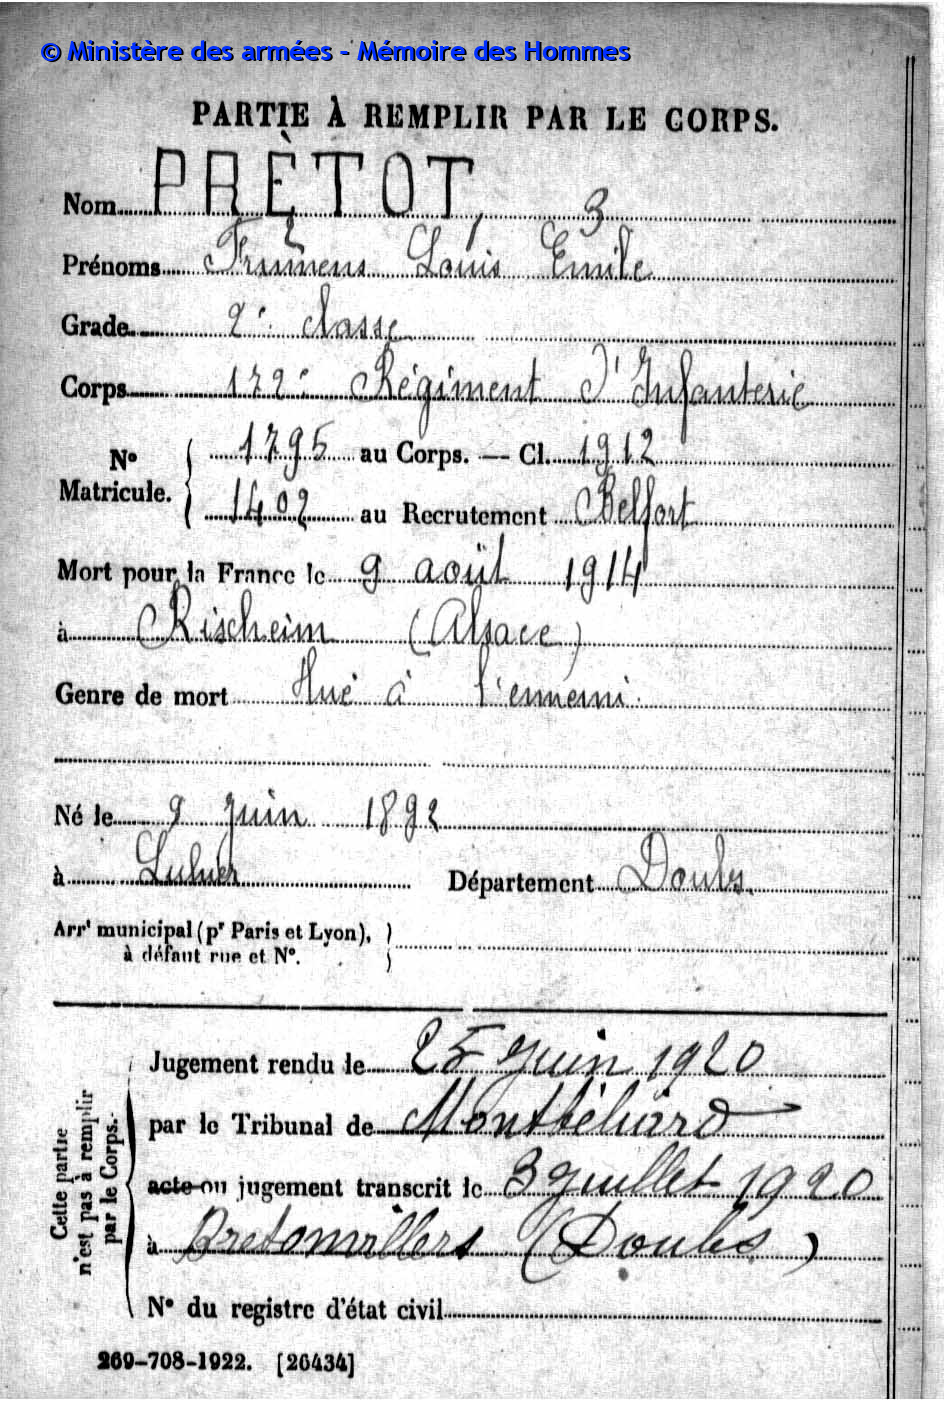 © Ministère des armées - Mémoire des Hommes
PARTIE À REMPLIR PAR LE CORPS.
Nom PRÈTOT
2 1 3
Prénoms Frumens Louis Emile
Grade 2e classe
Corps 172e Régiment d'Infanterie
N° Matricule. 1795 au Corps. — Cl. 1912
1402 au Recrutement Belfort
Mort pour la France le 9 août 1914
à Rischeim (Alsace)
Genre de mort Tué à l'ennemi
Né le 9 Juin 1892
à Département Doubs
Arrt municipal (pr Paris et Lyon),
à défaut rue et N°.
Cette partie n'est pas à remplir par le Corps.
Jugement rendu le 25 Juin 1920
par le Tribunal de Montbéliard
acte ou jugement transcrit le 3 Juillet 1920
à Bretonvillers (Doubs)
N° du registre d'état civil
269-708-1922. [26434]